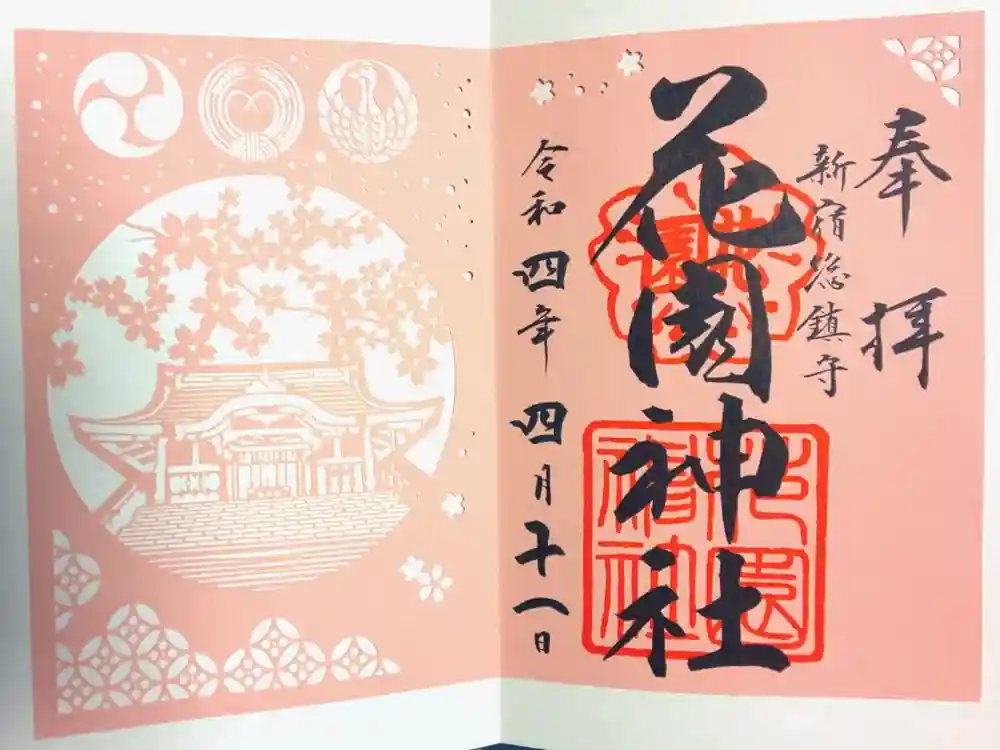 奉拝
新宿総鎮守
花園神社
花園
花園神社
令和四年四月十八日